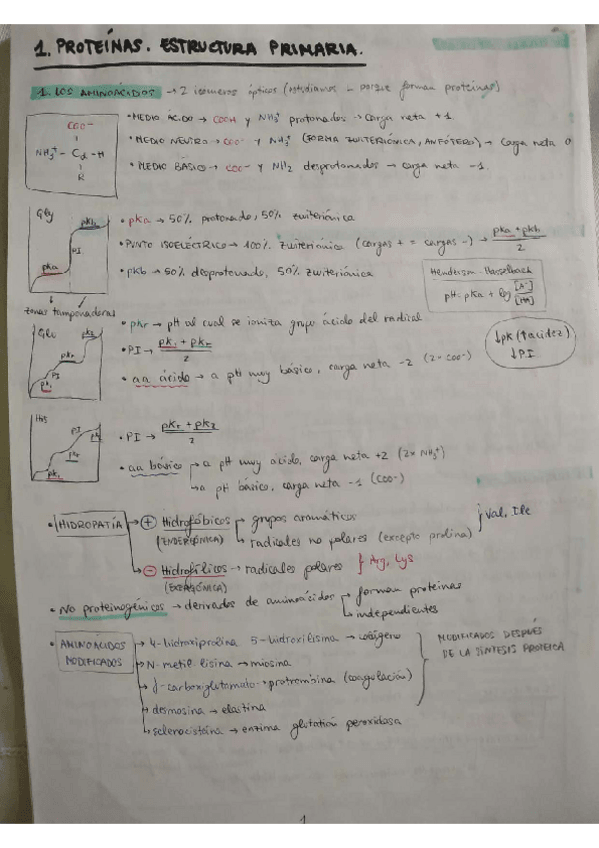 1. PROTEÍNAS. ESTRUCTURA PRIMARIA.
1. LOS AMINOÁCIDOS → 2 isómeros ópticos (estudiamos porque forman proteínas)
COO-
NH3+ - Cα - H
R
• MEDIO ÁCIDO → COOH y NH3+ protonados → carga neta +1
• MEDIO NEUTRO → COO- y NH3+ (FORMA ZWITERIÓNICA, ANFÓTERO) → Carga neta 0
• MEDIO BÁSICO → COO- y NH2 desprotonados → carga neta -1.
Gly
pKb
PI
pKa
• pKa → 50% protonado, 50% zwiteriónica
• PUNTO ISOELÉCTRICO → 100% zwiteriónica (cargas + = cargas -) → pKa + pKb / 2
• pKb → 50% desprotonado, 50% zwiteriónica
Henderson-Hasselbach
pH = pKa + log [A-] / [HA]
zonas tamponadoras
Glu
pK2
pKr
PI
pK1
• pKr → pH al cual se ioniza grupo ácido del radical
• PI → pK1 + pKr / 2
• aa ácido → a pH muy básico, carga neta -2 (2 COO-)
↓pK (↑acidez)
↓PI
His
PI
pK2
pKr
pK1
• PI → pKr + pK2 / 2
• aa básico → a pH muy ácido, carga neta +2 (2x NH3+)
→ a pH básico, carga neta -1 (COO-)
• HIDROPATÍA → + Hidrofóbicos → grupos aromáticos
(ENDERGÓNICA) → radicales no polares (excepto prolina) } Val, Ile
→ - Hidrofílicos → radicales polares } Arg, Lys
(EXERGÓNICA)
• No proteinogénicos → derivados de aminoácidos → forman proteínas
→ independientes
• AMINOÁCIDOS MODIFICADOS → 4-hidroxiprolina 5-hidroxilisina → colágeno
→ N-metil lisina → miosina
→ γ-carboxiglutamato → protrombina (coagulación)
→ desmosina → elastina
→ selenocisteína → enzima glutatión peroxidasa
MODIFICADOS DESPUÉS
DE LA SÍNTESIS PROTEICA
1